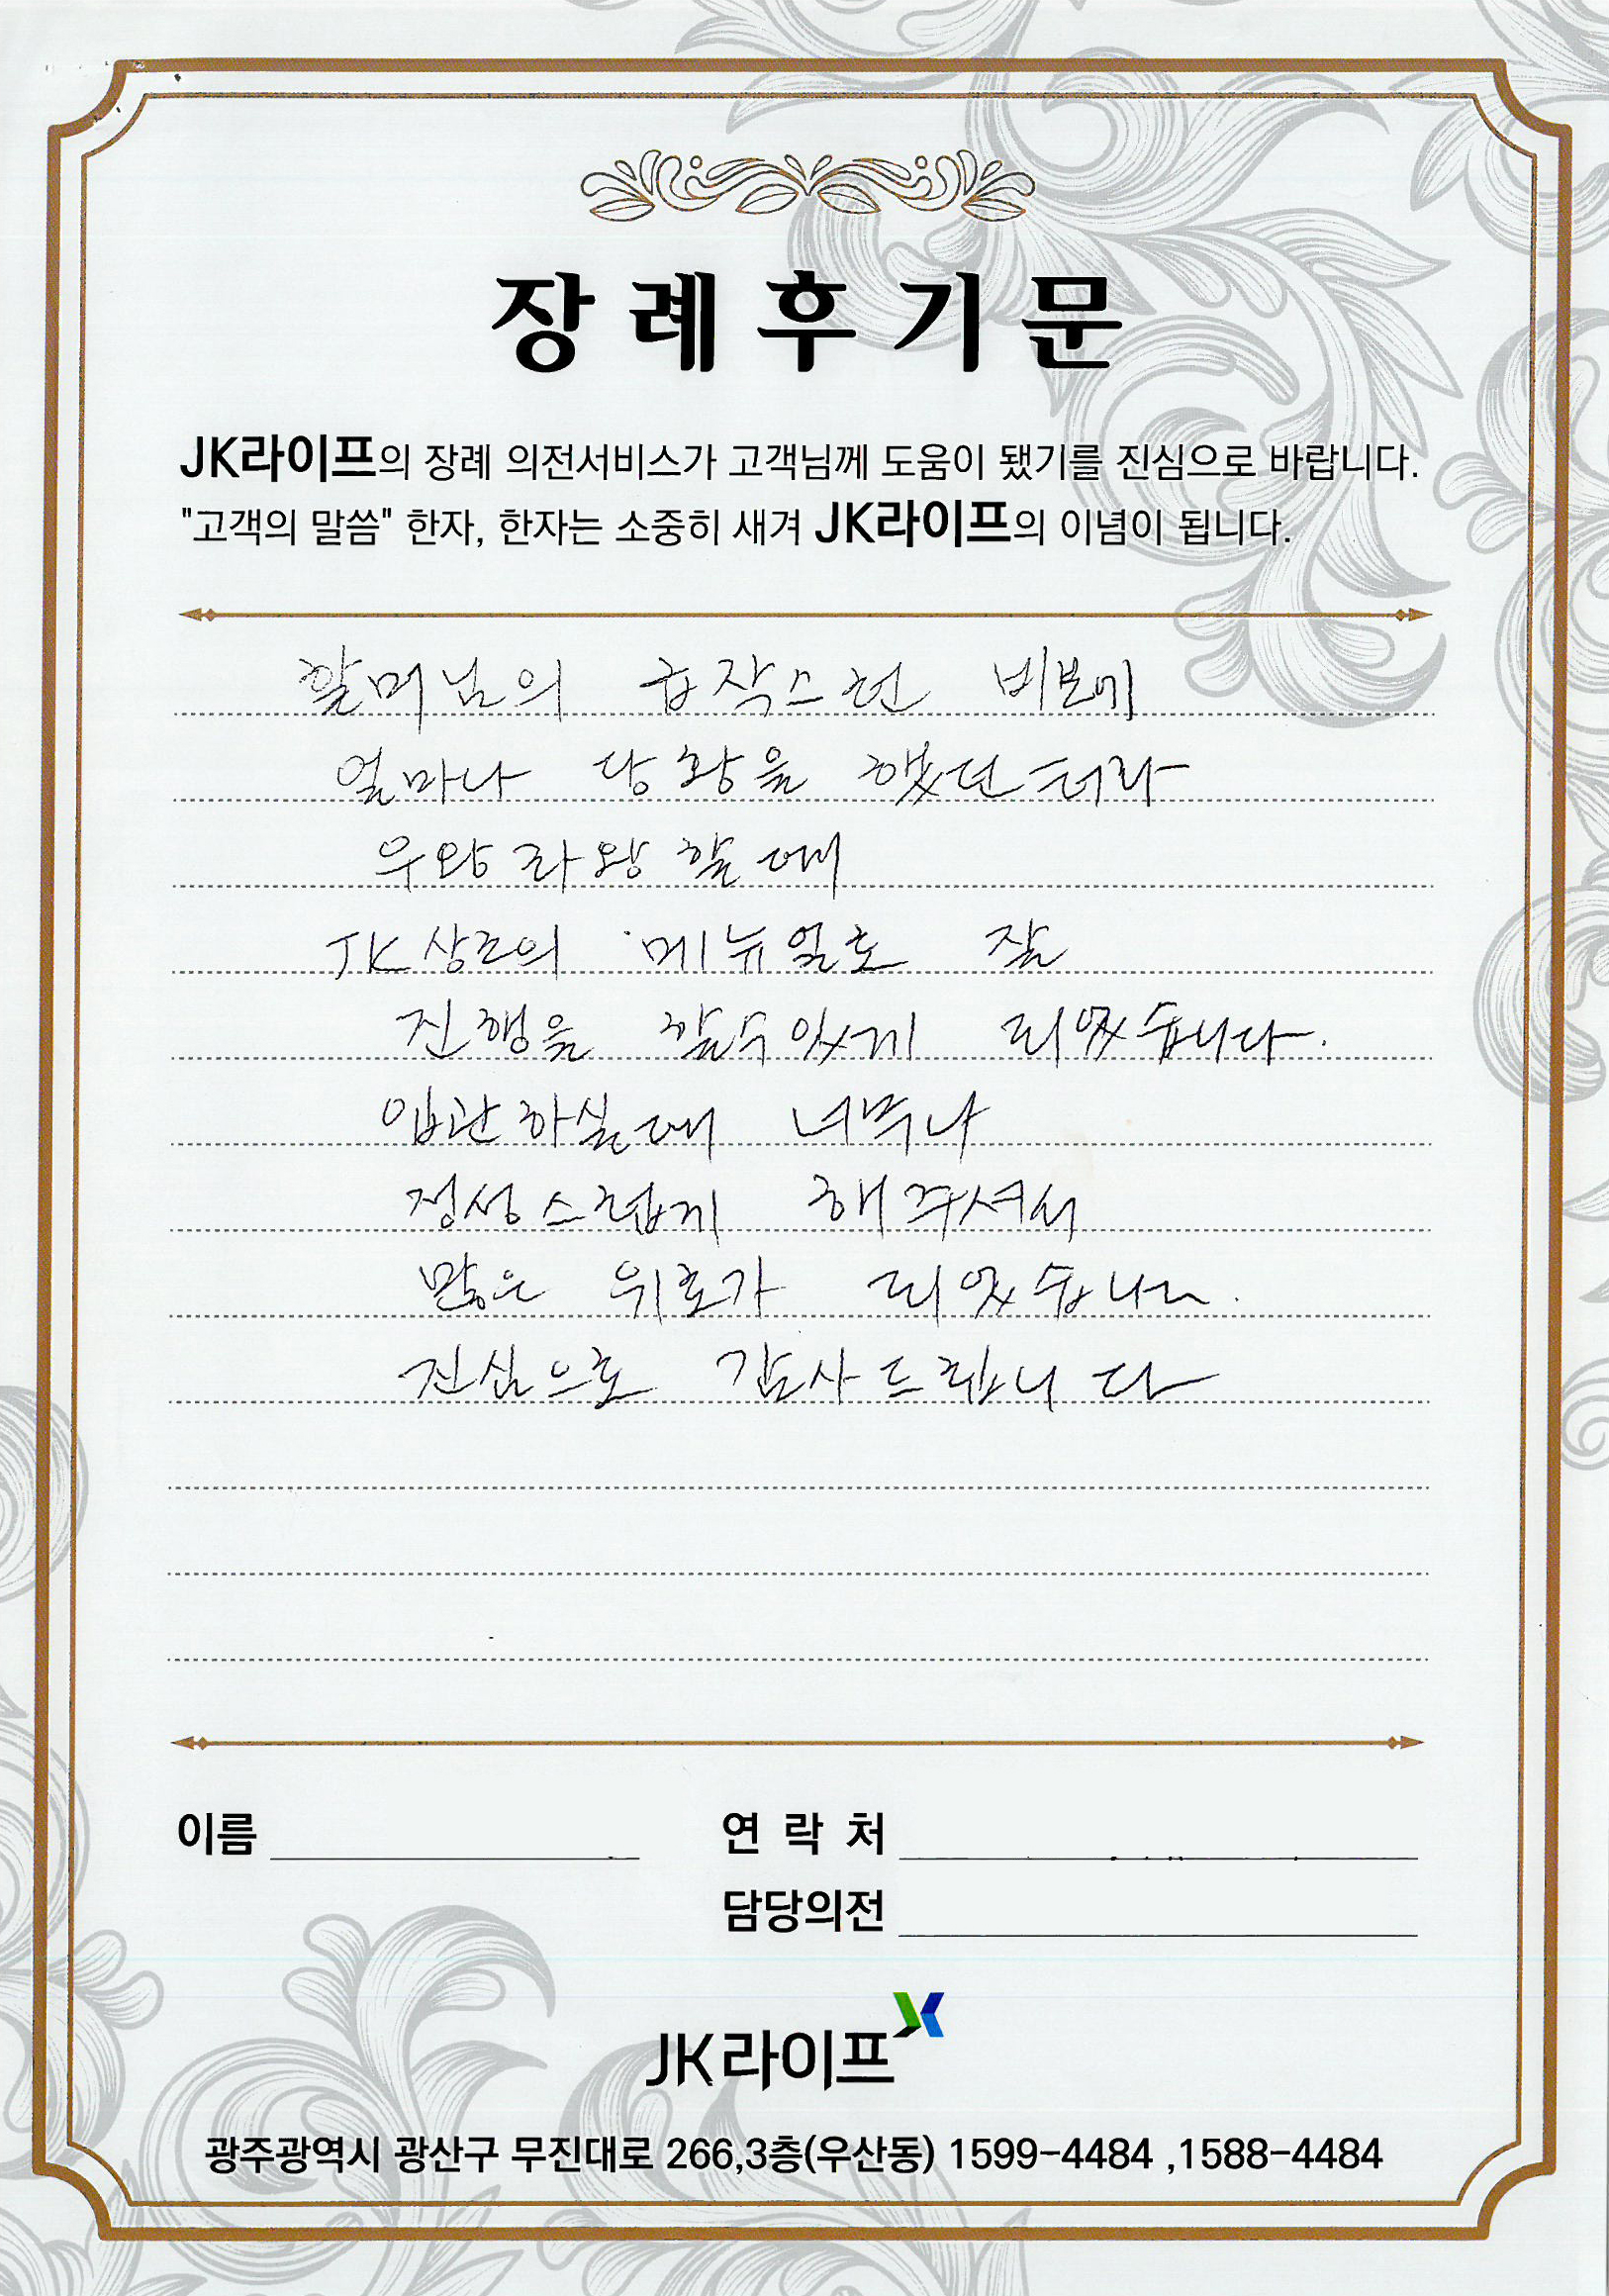 장례후기문
JK라이프의 장례 의전서비스가 고객님께 도움이 됐기를 진심으로 바랍니다.
"고객의 말씀" 한자, 한자는 소중히 새겨 JK라이프의 이념이 됩니다.
할머님의 갑작스런 비보에
얼마나 당황을 했던터라
우왕좌왕 할때
JK상조의 메뉴얼로 잘
진행을 할수있게 되었습니다.
입관하실때 너무나
정성스럽게 해주셔서
많은 위로가 되었습니다.
진심으로 감사드립니다
이름
연락처
담당의전
JK라이프
광주광역시 광산구 무진대로 266,3층(우산동) 1599-4484 ,1588-4484